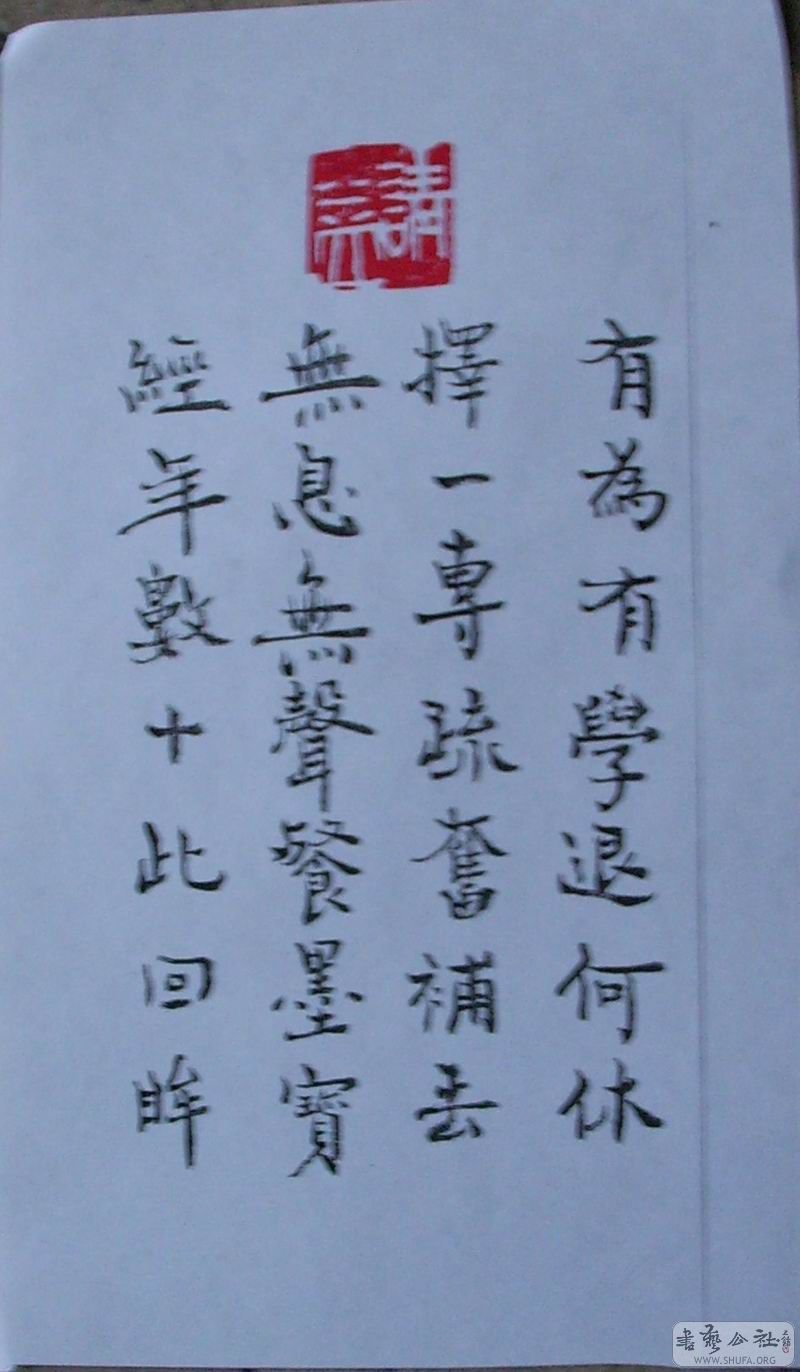 有為有學退何休
擇一專疏奮補丟
無息無聲餐墨寶
經年數十此回眸
書藝公社
WWW.SHUFA.ORG